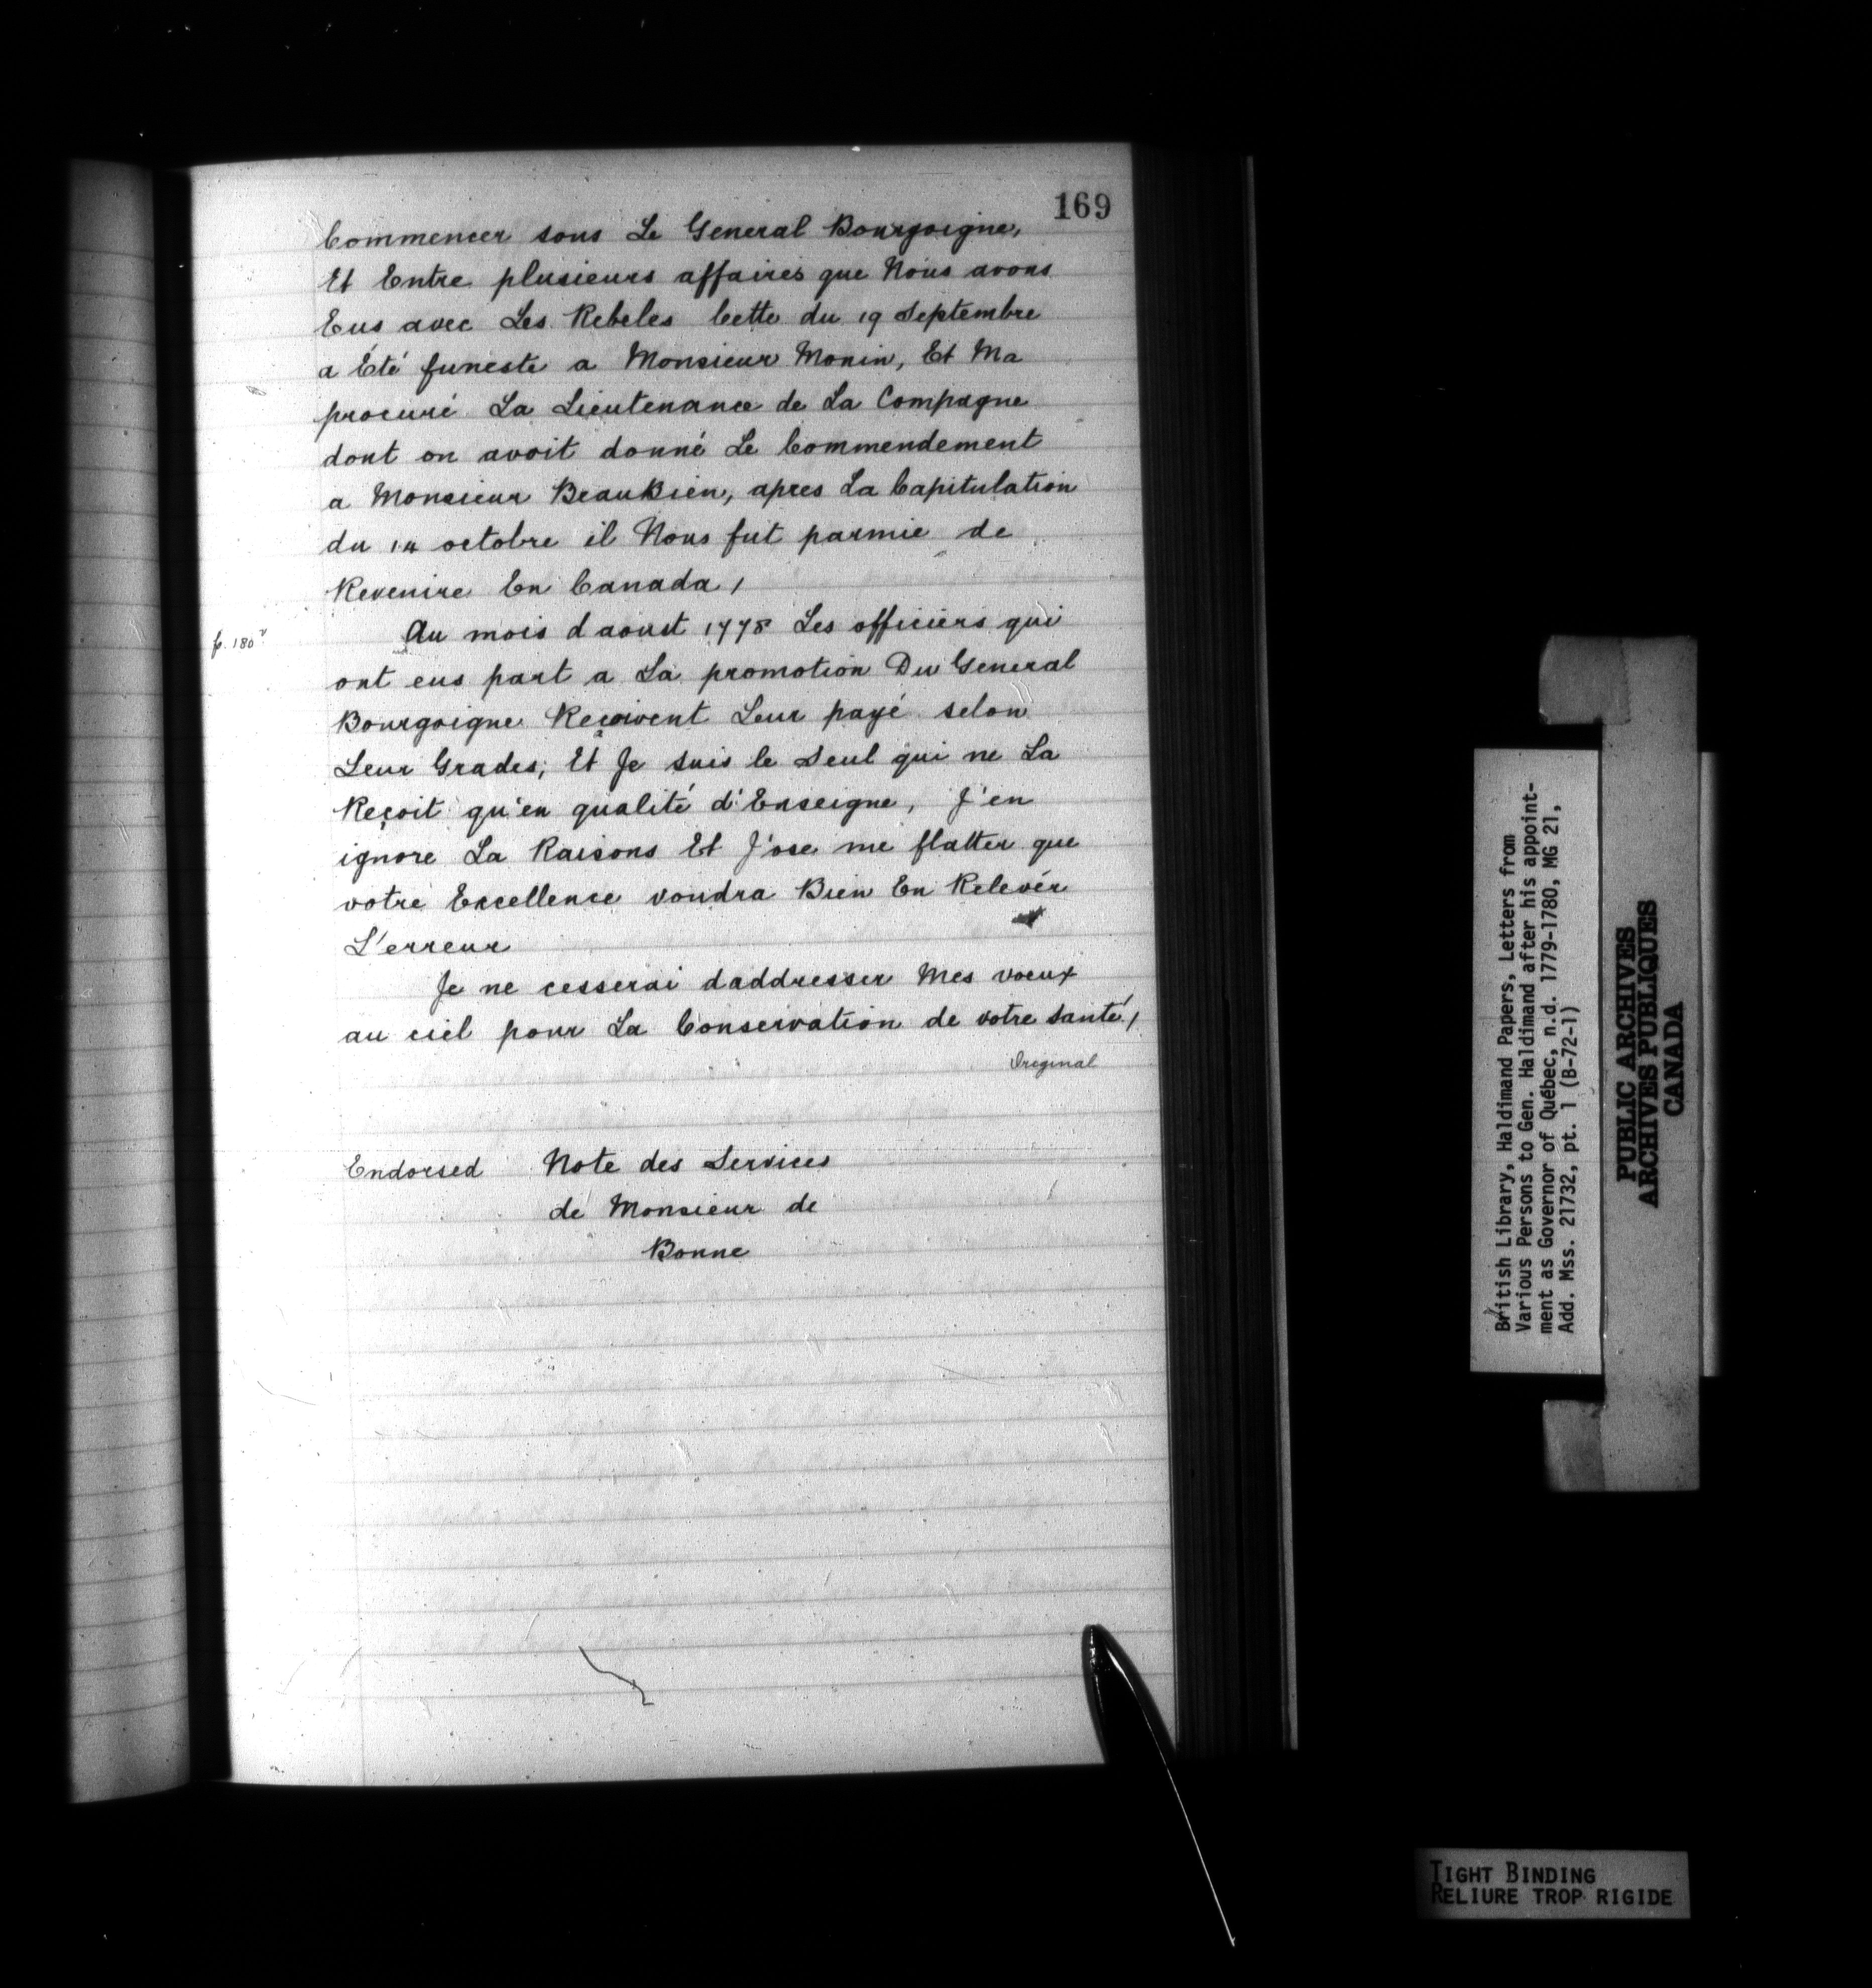 169
Commencer sous Le General Bourgoigne,
Et Entre plusieurs affaires que Nous avons
Eus avec Les Rebeles Cette du 19 Septembre
a Été funeste a Monsieur Monin, Et Ma
procuré La Lieutenance de La Compagne
dont on avoit donné Le Commendement
a Monsieur BeauBien, apres La Capitulation
du 14 octobre il Nous fut parmie de
Revenire En Canada /
p. 180v
Au mois d aoust 1778 Les officiers qui
ont eus part a La promotion Du General
Bourgoigne Reçoivent Leur payé selon
Leur Grades; Et Je suis le Seul qui ne La
Reçoit qu'en qualité d'Enseigne, J'en
ignore La Raisons Et J'ose me flatter que
votre Excellence voudra Bien En Relevér
L'erreur
Je ne cesserai daddresser Mes voeux
au ciel pour La Conservation de votre santé /
Original
Endorsed Note des Services
de Monsieur de
Bonne
British Library, Haldimand Papers, Letters from
Various Persons to Gen. Haldimand after his appoint-
ment as Governor of Québec, n.d. 1779-1780, MG 21,
Add. Mss. 21732, pt. 1 (B-72-1)
PUBLIC ARCHIVES
ARCHIVES PUBLIQUES
CANADA
TIGHT BINDING
RELIURE TROP RIGIDE